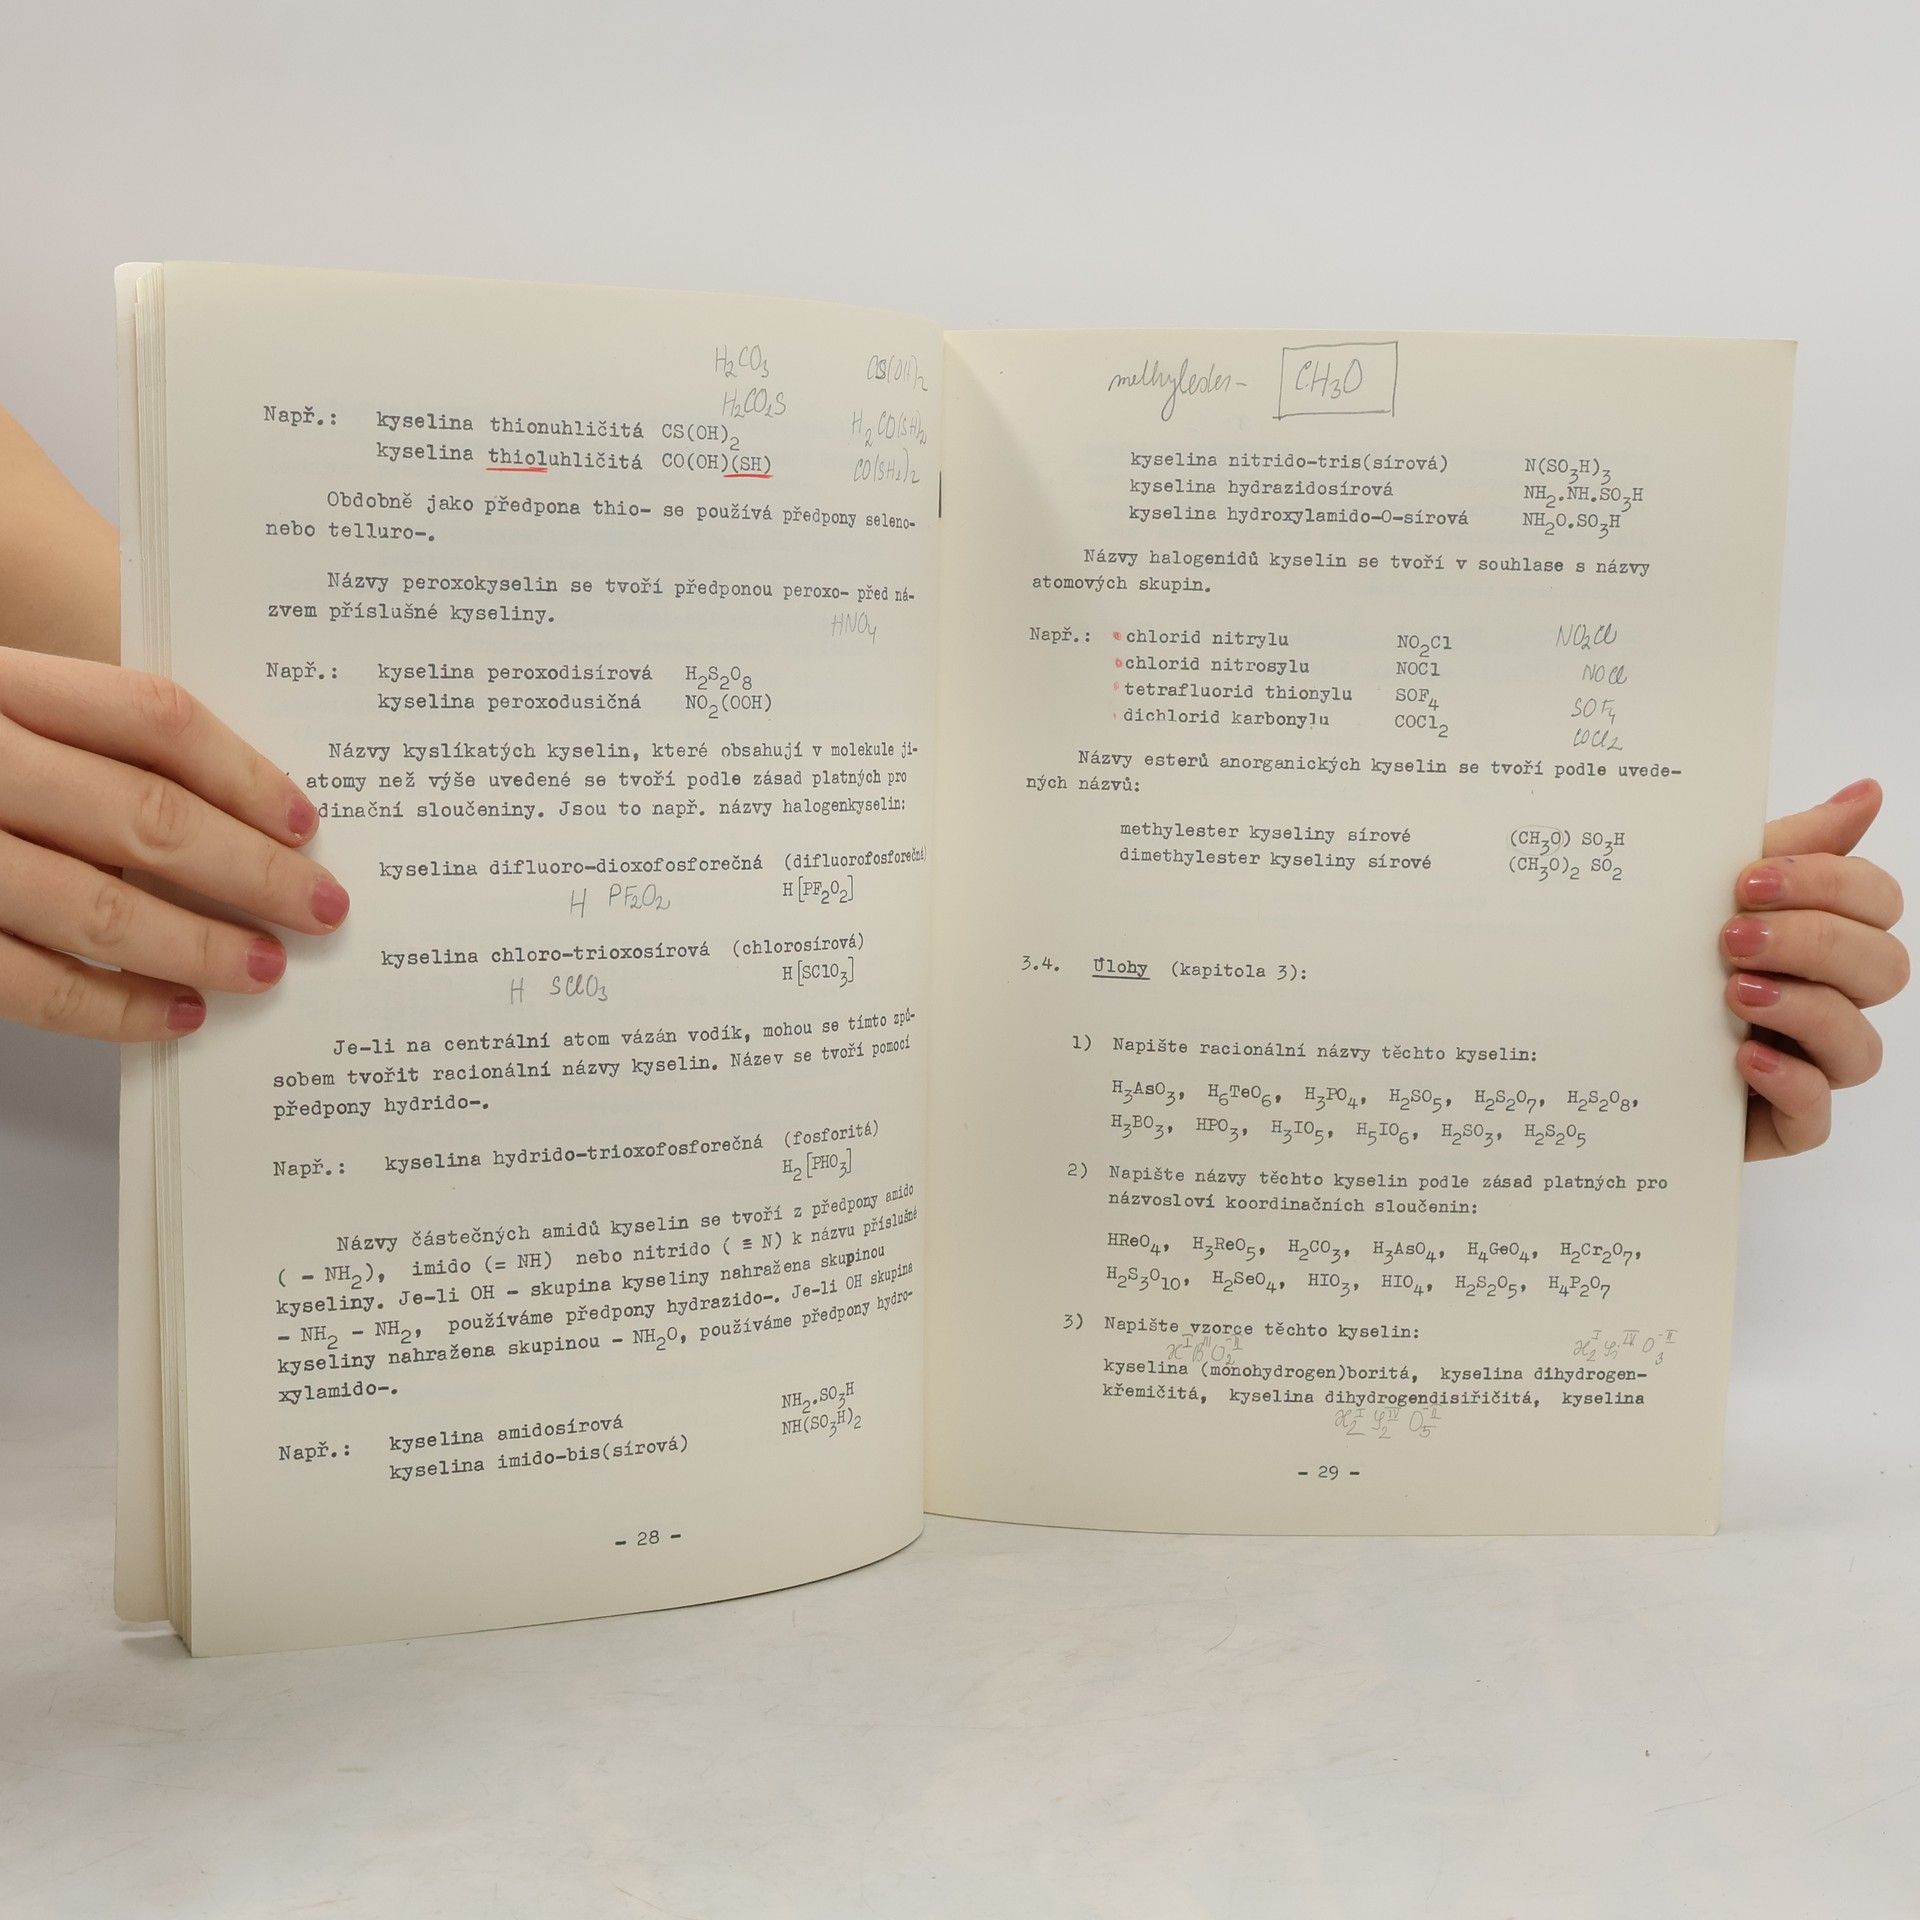 H₂CO₃ CS(OH)₂
H₂CO₂S
Např.: kyselina thionuhličitá CS(OH)₂ H₂CO(SH)₂
kyselina thioluhličitá CO(OH)(SH) CO(SH₂)₂
Obdobně jako předpona thio- se používá předpony seleno-
nebo telluro-.
Názvy peroxokyselin se tvoří předponou peroxo- před ná-
zvem příslušné kyseliny.
HNO₄
Např.: kyselina peroxodisírová H₂S₂O₈
kyselina peroxodusičná NO₂(OOH)
Názvy kyslíkatých kyselin, které obsahují v molekule ji-
atomy než výše uvedené se tvoří podle zásad platných pro
dinační sloučeniny. Jsou to např. názvy halogenkyselin:
kyselina difluoro-dioxofosforečná (difluorofosforečná)
H PF₂O₂ H[PF₂O₂]
kyselina chloro-trioxosírová (chlorosírová)
H SClO₃ H[SClO₃]
Je-li na centrální atom vázán vodík, mohou se tímto způ-
sobem tvořit racionální názvy kyselin. Název se tvoří pomocí
předpony hydrido-.
Např.: kyselina hydrido-trioxofosforečná (fosforitá)
H₂[PHO₃]
Názvy částečných amidů kyselin se tvoří z předpony amido
( - NH₂), imido (= NH) nebo nitrido ( ≡ N) k názvu příslušné
kyseliny. Je-li OH - skupina kyseliny nahražena skupinou
- NH₂ - NH₂, používáme předpony hydrazido-. Je-li OH skupina
kyseliny nahražena skupinou - NH₂O, používáme předpony hydro-
xylamido-.
Např.: kyselina amidosírová NH₂.SO₃H
kyselina imido-bis(sírová) NH(SO₃H)₂
- 28 -
methylester- CH₃O
kyselina nitrido-tris(sírová) N(SO₃H)₃
kyselina hydrazidosírová NH₂.NH.SO₃H
kyselina hydroxylamido-O-sírová NH₂O.SO₃H
Názvy halogenidů kyselin se tvoří v souhlase s názvy
atomových skupin.
Např.: chlorid nitrylu NO₂Cl NO₂Cl
chlorid nitrosylu NOCl NOCl
tetrafluorid thionylu SOF₄ SOF₄
dichlorid karbonylu COCl₂ COCl₂
Názvy esterů anorganických kyselin se tvoří podle uvede-
ných názvů:
methylester kyseliny sírové (CH₃O) SO₃H
dimethylester kyseliny sírové (CH₃O)₂ SO₂
3.4. Úlohy (kapitola 3):
1) Napište racionální názvy těchto kyselin:
H₃AsO₃, H₆TeO₆, H₃PO₄, H₂SO₅, H₂S₂O₇, H₂S₂O₈,
H₃BO₃, HPO₃, H₃IO₅, H₅IO₆, H₂SO₃, H₂S₂O₅
2) Napište názvy těchto kyselin podle zásad platných pro
názvosloví koordinačních sloučenin:
HReO₄, H₃ReO₅, H₂CO₃, H₃AsO₄, H₄GeO₄, H₂Cr₂O₇,
H₂S₃O₁₀, H₂SeO₄, HIO₃, HIO₄, H₂S₂O₅, H₄P₂O₇
3) Napište vzorce těchto kyselin:
H^I B^III O₂^-II H₂^I Si^IV O₃^-II
kyselina (monohydrogen)boritá, kyselina dihydrogen-
křemičitá, kyselina dihydrogendisiřičitá, kyselina
H₂^I S₂^IV O₅^-II
- 29 -